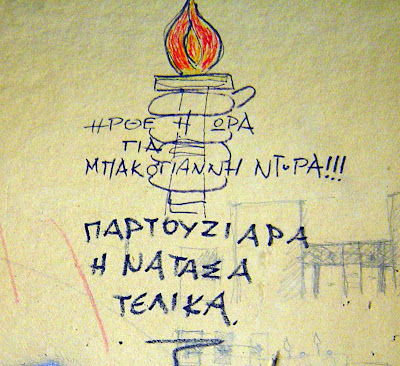 ΗΡΘΕ Η ΩΡΑ
ΓΙΑ
ΜΠΑΚΟΓΙΑΝΝΗ ΝΤΟΡΑ!!!
ΠΑΡΤΟΥΖΙΑΡΑ
Η ΝΑΤΑΣΑ
ΤΕΛΙΚΑ.